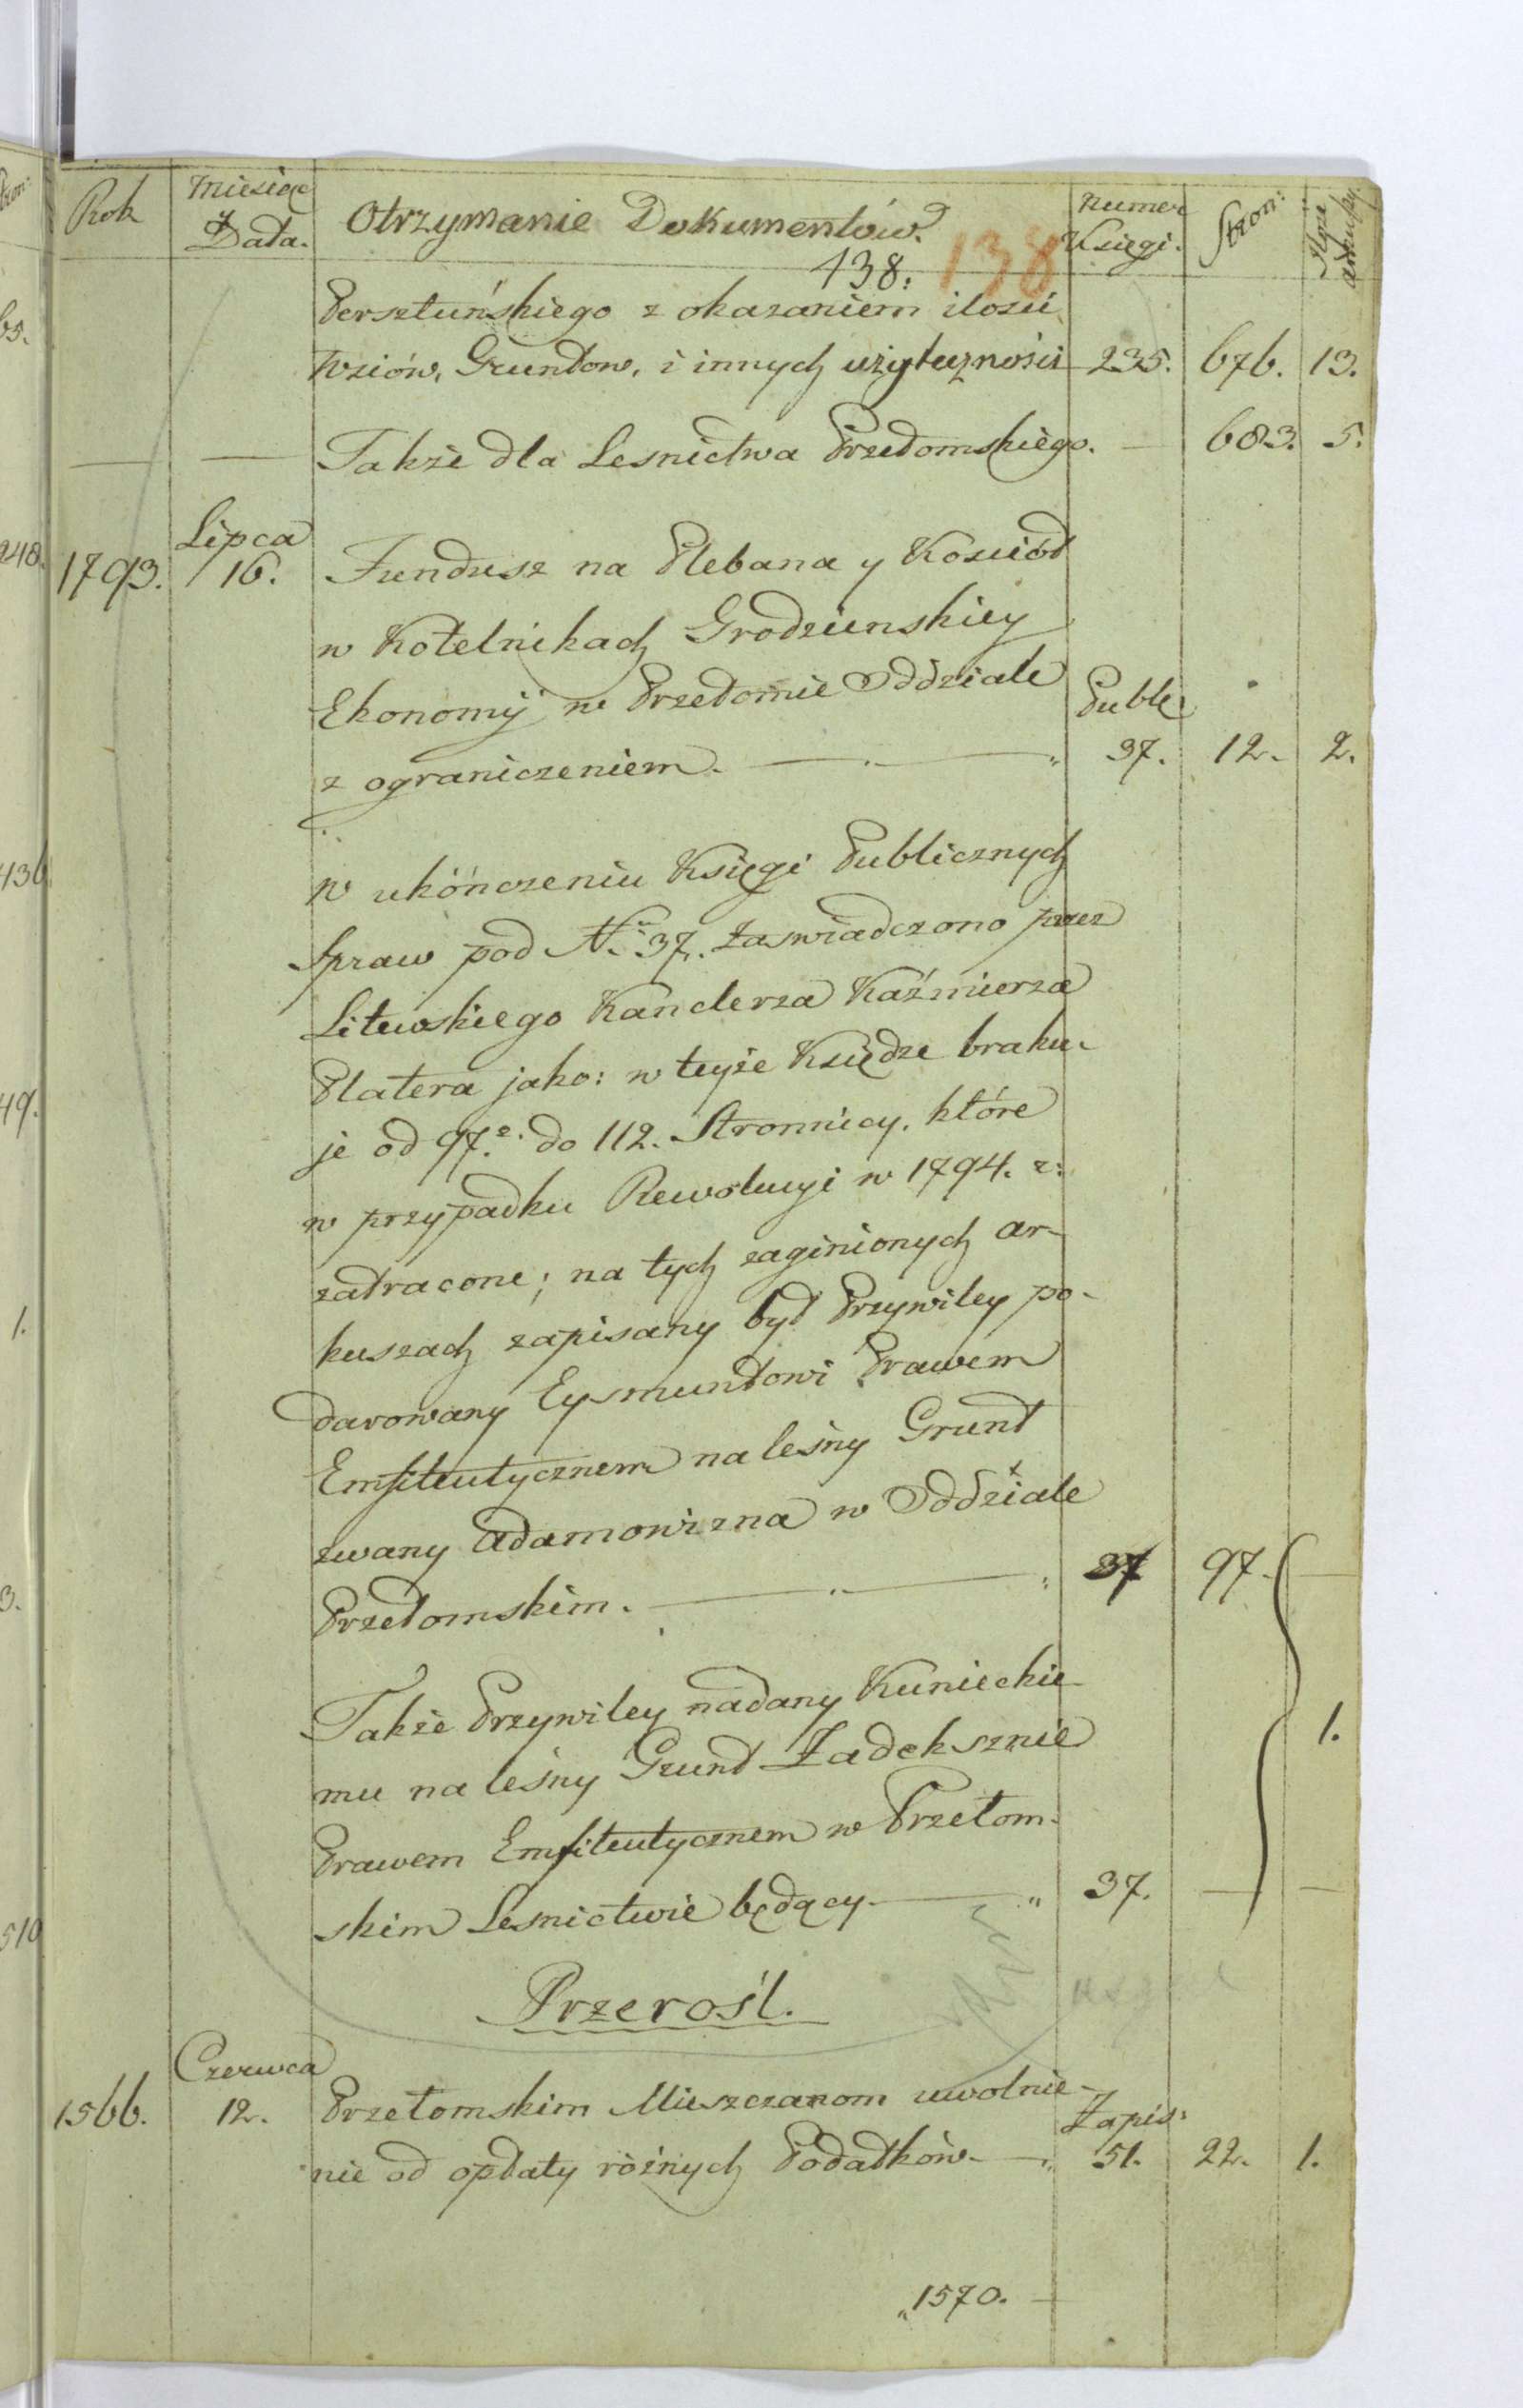 Rok
Miesiąc
y
Data.
Otrzymanie Dokumentów.
Numer
Księgi.
Stron:
arkuszy.
138.
138
Persztuńskiego z okazaniem ilosci
Wsiów, Gruntow, i innych użyteczności 235. 676. 13.
— — Także dla Lesnictwa Przełomskiego. — 683. 5.
Lipca
1793. 16. Fundusz na Plebana y Kosciół
w Kotelnikach Grodzienskiey
Ekonomij w Przełomie Oddziale Publ:
z ograniczeniem. — 37. 12. 2.
W ukończeniu Księgi Publicznych
Spraw pod No 37. Zaswiadczono przez
Litewskiego Kanclerza Kaźmierza
Platera jako: w teyże Księdze braku-
je od 97.o do 112. Stronnicy, które
w przypadku Rewolucyi w 1794. r:
zatracone; na tych zaginionych ar-
kuszach zapisany był Przywiley po-
darowany Eysmuntowi Prawem
Emfiteutycznem na leśny Grunt
zwany Adamowizna w Oddziale
Przełomskim. — 37 97. —
Także Przywiley nadany Kunieckie-
mu na leśny Grunt Zadeksznie
1.
Prawem Emfiteutycznem w Przełom-
skim Lesnictwie będący — 37. — —
Przerośl.
Czerwca
1566. 12. Przełomskim Mieszczanom uwolnie-
Zapis:
nie od opłaty różnych Podatków — 51. 22. 1.
1570. —